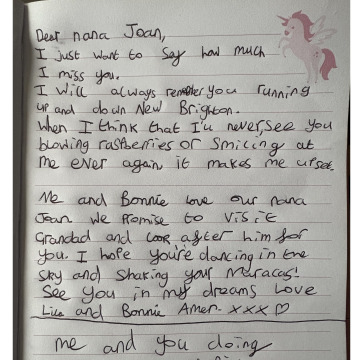 Dear nana Joan,
I just want to say how much
I miss you.
I will always remeber you running
up and down New Brighton.
When I think that I'll never see you
blowing rastberries or smiling at
me ever again it makes me upset.
Me and Bonnie love our nana
Joan we Promise to visit
Grandad and look after him for
you. I hope you're dancing in the
sky and shaking your maracas!
See you in my dreams love
and Bonnie Amen. xxx ♡
me and you doing